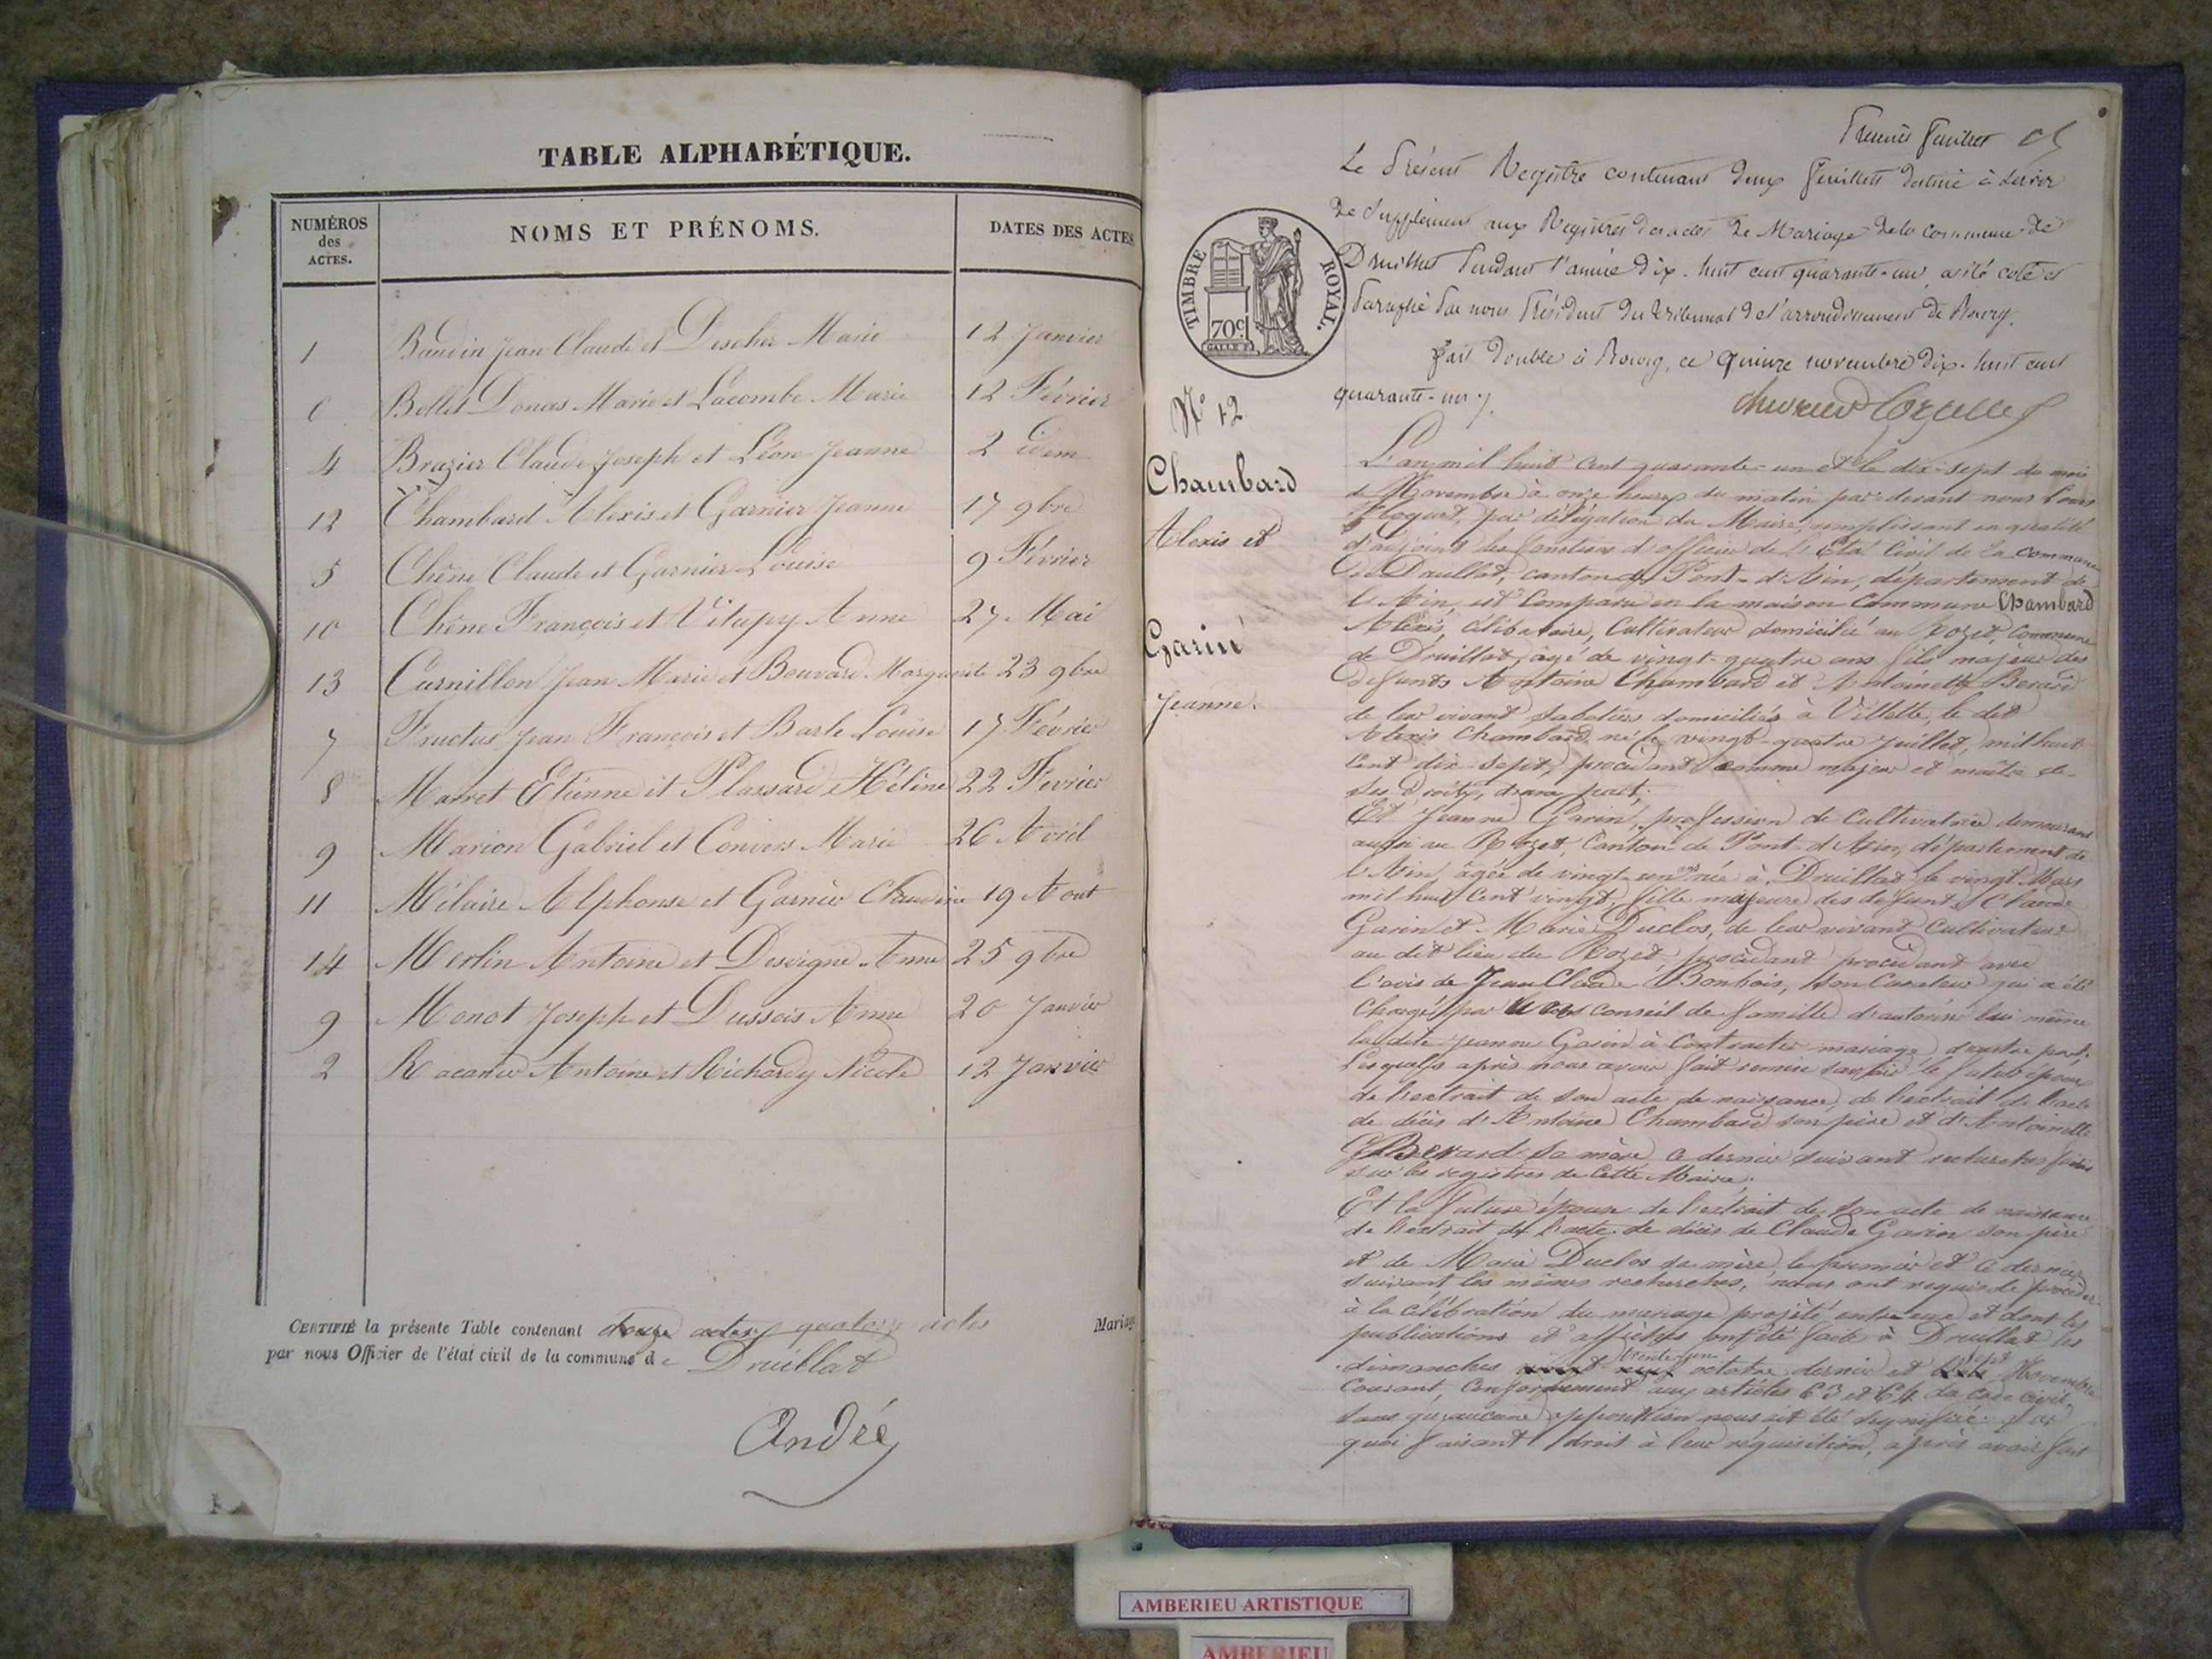 TABLE ALPHABÉTIQUE.
NUMÉROS des ACTES.
NOMS ET PRÉNOMS.
DATES DES ACTES
1 Baudin Jean Claude et Descher Marie 12 Janvier
6 Bellet Donas Marie et Lacombe Marie 12 Février
4 Brazier Claude Joseph et Léon Jeanne 2 idem
12 Chambard Alexis et Garnier Jeanne 17 9bre
5 Chêne Claude et Garnier Louise 9 Février
10 Chêne François et Vitupy Anne 27 Mai
13 Curnillon Jean Marie et Bouvard Marguerite 23 9bre
7 Fructus Jean François et Barle Louise 17 Février
8 Marret Etienne et Plassard Hélène 22 Février
9 Marion Gabriel et Convers Marie 26 Avril
11 Mélaire Alphonse et Garnier Claudine 19 Aout
14 Merlin Antoine et Desvigne Anne 25 9bre
9 Monot Joseph et Dussois Anne 20 Janvier
2 Racand Antoine et Richardy Nicole 12 Janvier
CERTIFIÉ la présente Table contenant douze actes quatorze actes Mariag
par nous Officier de l'état civil de la commune de Druillat
André
Premier feuillet
Le Présent Registre contenant deux feuillets destiné à servir
de supplément aux Registres des actes de Mariage de la commune de
Druillat Pendant l'année dix-huit cent quarante-un, a été coté et
Paraphé Par nous Président du tribunal de l'arrondissement de Bourg.
fait double à Bourg, ce quinze novembre dix-huit cent
quarante-un
TIMBRE ROYAL.
70c
N° 12
Chambard
Alexis et
Garin
Jeanne.
L'an mil huit cent quarante-un et le dix-sept du mois
de Novembre à onze heures du matin par devant nous
par délégation du Maire, remplissant en qualité
d'adjoint les fonctions d'officier de l'Etat Civil de la commune
de Druillat, canton de Pont-d'Ain, département de
l'Ain, est Comparu en la maison Commune Chambard
Alexis, célibataire, Cultivateur domicilié au Rozet, Commune
de Druillat, âgé de vingt-quatre ans fils majeur des
defunts Antoine Chambard et Antoinette Berard
de leur vivant sabotiers domiciliés à Villette, le dit
Alexis Chambard né le vingt-quatre Juillet, mil huit
cent dix-sept, procédant comme majeur et maître de
ses droits, d'une part;
Et Jeanne Garin, profession de Cultivatrice demeurant
aussi au Rozet, Canton de Pont-d'Ain, département de
l'Ain, âgée de vingt-un ans née à Druillat le vingt Mars
mil huit cent vingt, fille majeure des defunts Claude
Garin et Marie Duclos, de leur vivant Cultivateurs
au dit lieu du Rozet, procédant procédant avec
l'avis de Jean Claude Bonbois, son Curateur qui a été
Chargé par un conseil de famille d'autoriser lui même
la dite Jeanne Garin à Contracter mariage d'autre part.
Lesquels après nous avoir fait remise savoir le futur époux
de l'extrait de son acte de naissance, de l'extrait de l'acte
de décès d'Antoine Chambard son père et d'Antoinette
Berard sa mère ce dernier suivant recherches faites
sur les registres de cette Mairie;
Et la future épouse de l'extrait de son acte de naissance
de l'extrait de l'acte de décès de Claude Garin son père
et de Marie Duclos sa mère, le premier et ce dernier
suivant les mêmes recherches, nous ont requis de procéder
à la célébration du mariage projeté entre eux et dont les
publications et affiches ont été faite à Druillat les
dimanches trente-un octobre dernier et sept Novembre
courant, Conformément aux articles 63 et 64 du code civil,
sans qu'aucune opposition nous ait été signifiée.
quoi faisant droit à leur réquisition, après avoir fait
AMBERIEU ARTISTIQUE
AMBERIEU